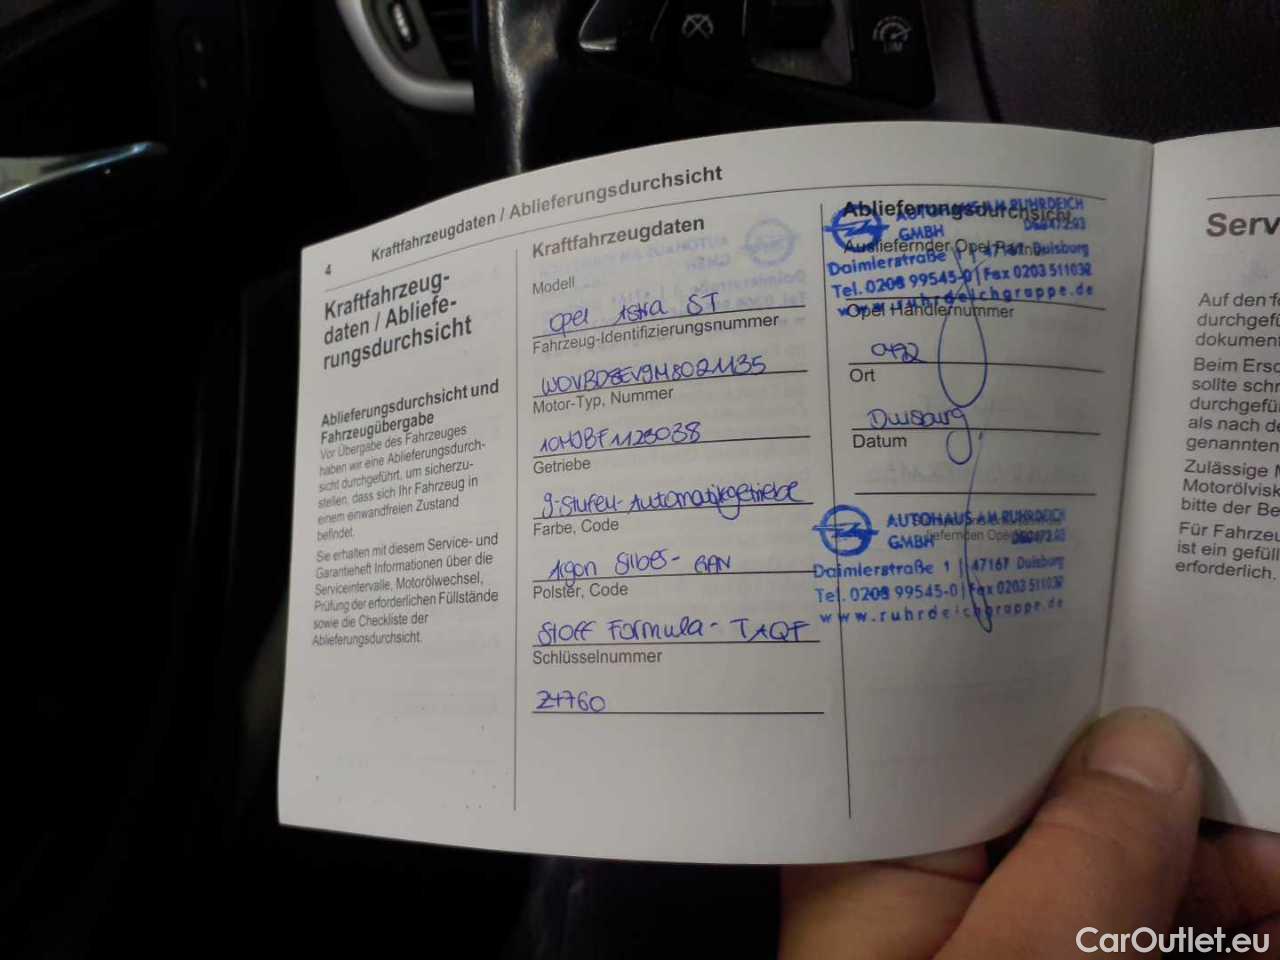 4
Kraftfahrzeugdaten / Ablieferungsdurchsicht
Kraftfahrzeug-
daten / Abliefe-
rungsdurchsicht
Ablieferungsdurchsicht und
Fahrzeugübergabe
Vor Übergabe des Fahrzeuges
haben wir eine Ablieferungsdurch-
sicht durchgeführt, um sicherzu-
stellen, dass sich Ihr Fahrzeug in
einem einwandfreien Zustand
befindet.
Sie erhalten mit diesem Service- und
Garantieheft Informationen über die
Serviceintervalle, Motorölwechsel,
Prüfung der erforderlichen Füllstände
sowie die Checkliste der
Ablieferungsdurchsicht.
Kraftfahrzeugdaten
Modell
Opel Astra ST
Fahrzeug-Identifizierungsnummer
W0VBD8EV9M8021135
Motor-Typ, Nummer
10HJBF1123038
Getriebe
9-Stufen-Automatikgetriebe
Farbe, Code
Argon Silber - GAN
Polster, Code
Stoff Formula - TAQF
Schlüsselnummer
Z4760
Ablieferungsdurchsicht
AUTOHAUS AM RUHRDEICH
GMBH
Ausliefernder Opel Partner
Daimlerstraße 1 | 47167 Duisburg
Tel. 0203 99545-0 | Fax 0203 511032
www.ruhrdeichgruppe.de
Opel Händlernummer
0472
Ort
Duisburg
Datum
AUTOHAUS AM RUHRDEICH
GMBH
Daimlerstraße 1 | 47167 Duisburg
Tel. 0203 99545-0 | Fax 0203 511032
www.ruhrdeichgruppe.de
Serv
Auf den
durchgefü
dokument
Beim Ersc
sollte schr
durchgefü
als nach de
genannten
Zulässige M
Motorölvisk
bitte der Be
Für Fahrzeu
ist ein gefüll
erforderlich.
LIM
CarOutlet.eu